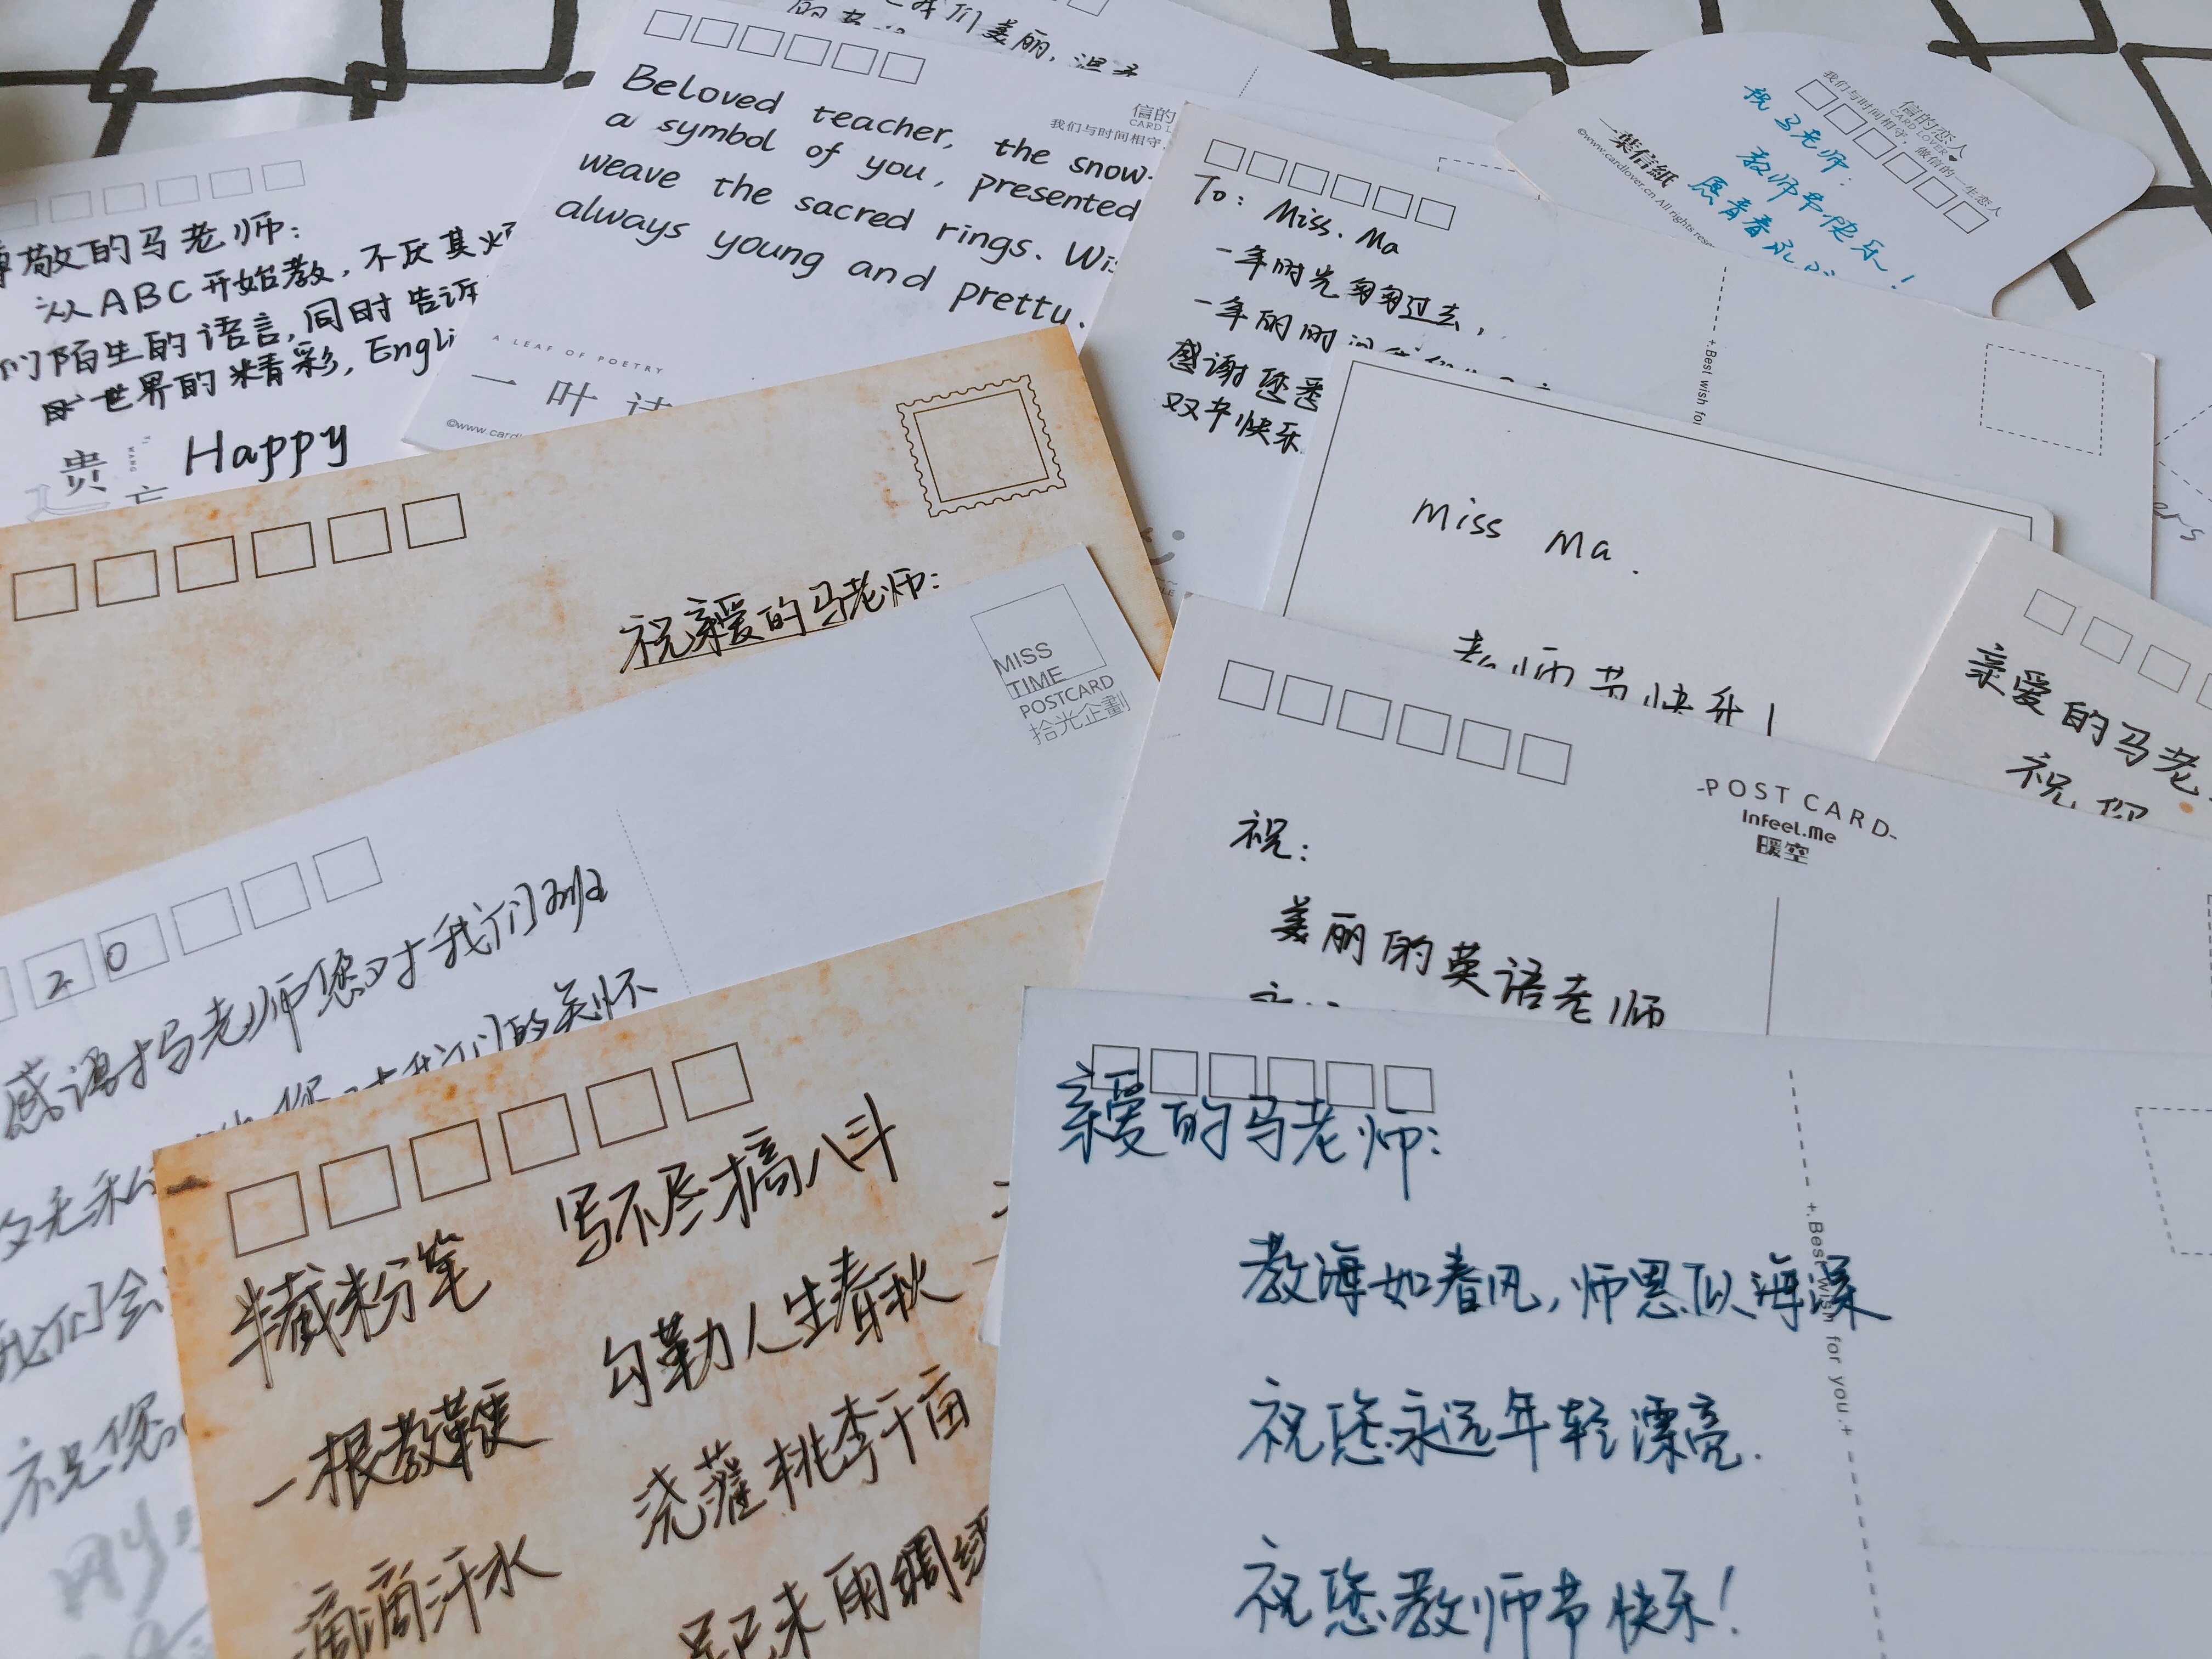 我们美丽,温柔
Beloved teacher, the snow-
a symbol of you, presented
weave the sacred rings.
always young and pretty.
信的
CARD L
我们与时间相守,
A LEAF OF POETRY
一叶诗
©www.cardl
我们与时间相守,做信的一生恋人
信的恋人
CARD LOVER
祝马老师:
教师节快乐!
愿青春永
一葉信紙
©www.cardlover.cn All rights rese
尊敬的马老师:
从ABC开始教,不厌其烦
们陌生的语言,同时告诉
世界的精彩,Engli
贵
忘
WANG
Happy
To: Miss. Ma
一年时光匆匆过去,
一年
感谢您悉
双节快乐
+.Best wish for
Miss Ma.
老师节快乐!
ers
亲爱的马老
祝您
祝亲爱的马老师:
MISS
TIME
POSTCARD
拾光企劃
20
感谢马老师您对我们班
我们的关怀
我们会
祝您
-POST CARD-
Infeel.Me
暖空
祝:
美丽的英语老师
半截粉笔
写不尽
八斗
勾勒人生春秋
一根教鞭
浇灌桃李千亩
滴滴汗水
未雨绸缪
亲爱的马老师:
教海如春风,师恩似海深
祝您永远年轻漂亮.
祝您教师节快乐!
+.Best wish for you.+